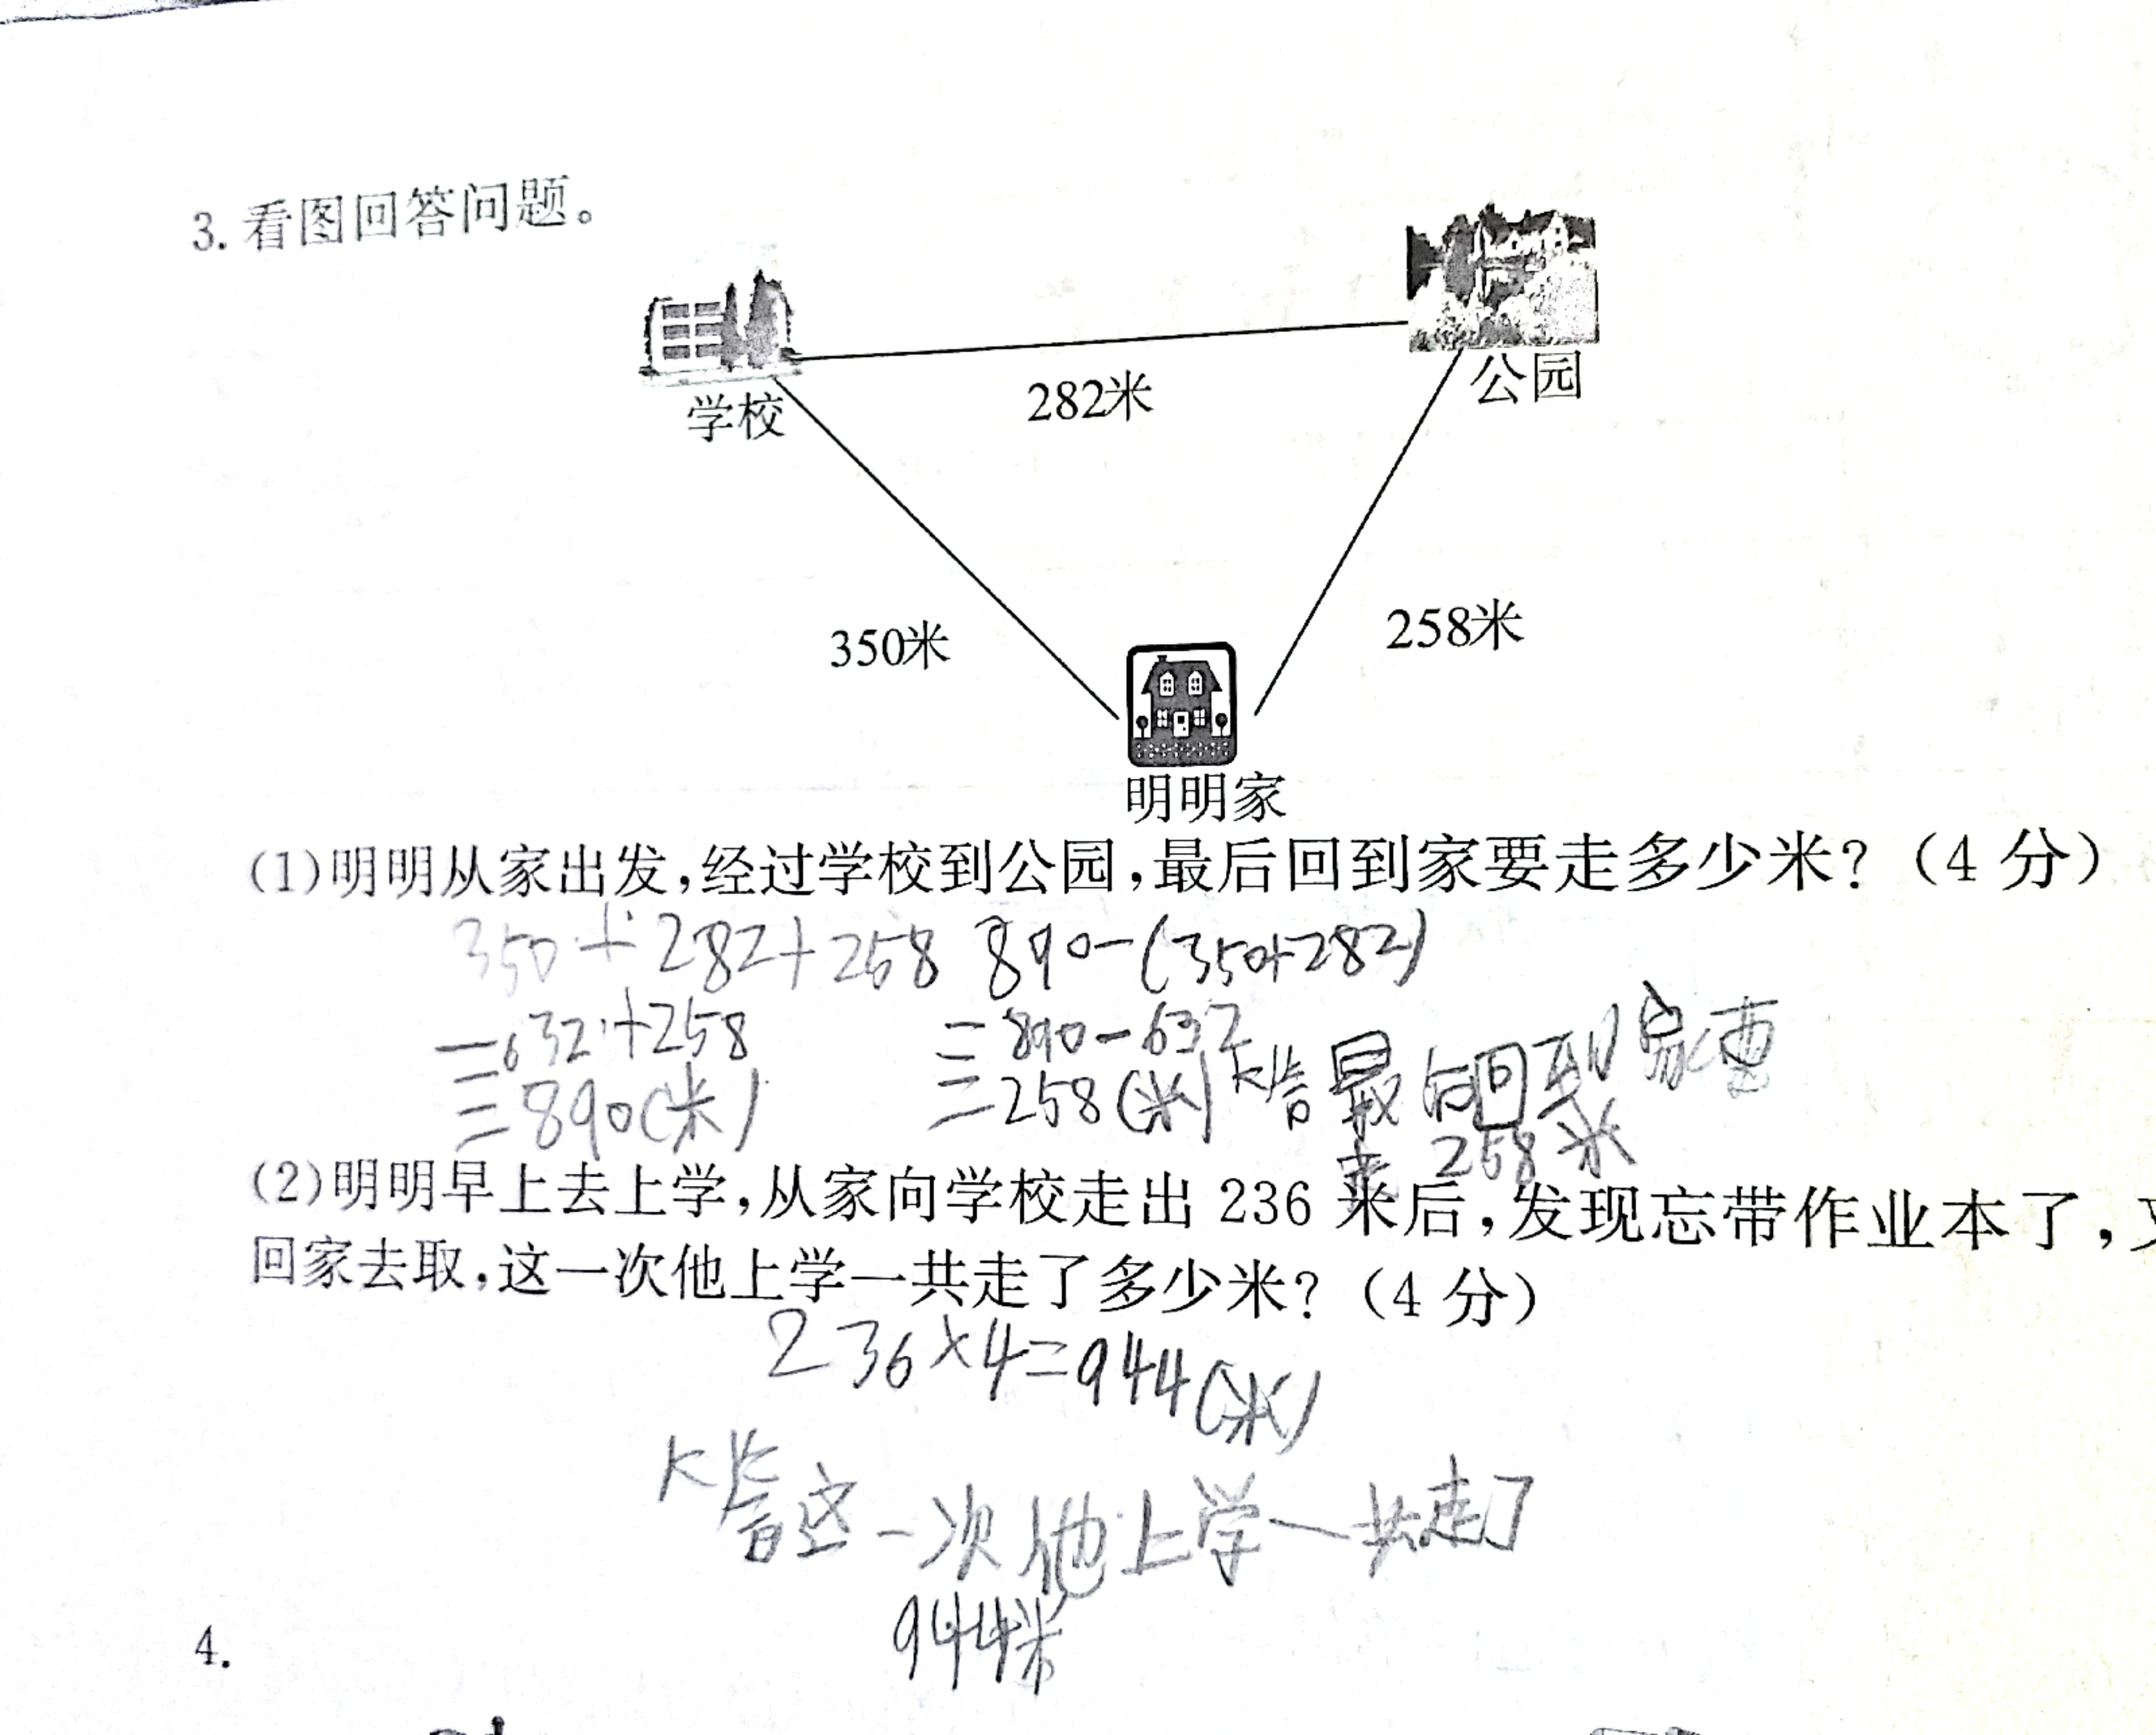 3. 看图回答问题。
学校
282米
公园
350米
258米
明明家
(1)明明从家出发,经过学校到公园,最后回到家要走多少米?(4分)
350+282+258 890-(350+282)
=632+258 =890-632
=890(米) =258(米) 答最后回到家要
走 258米
(2)明明早上去上学,从家向学校走出 236 米后,发现忘带作业本了,
回家去取,这一次他上学一共走了多少米?(4分)
236×4=944(米)
答这一次他上学一共走了
944米
4.